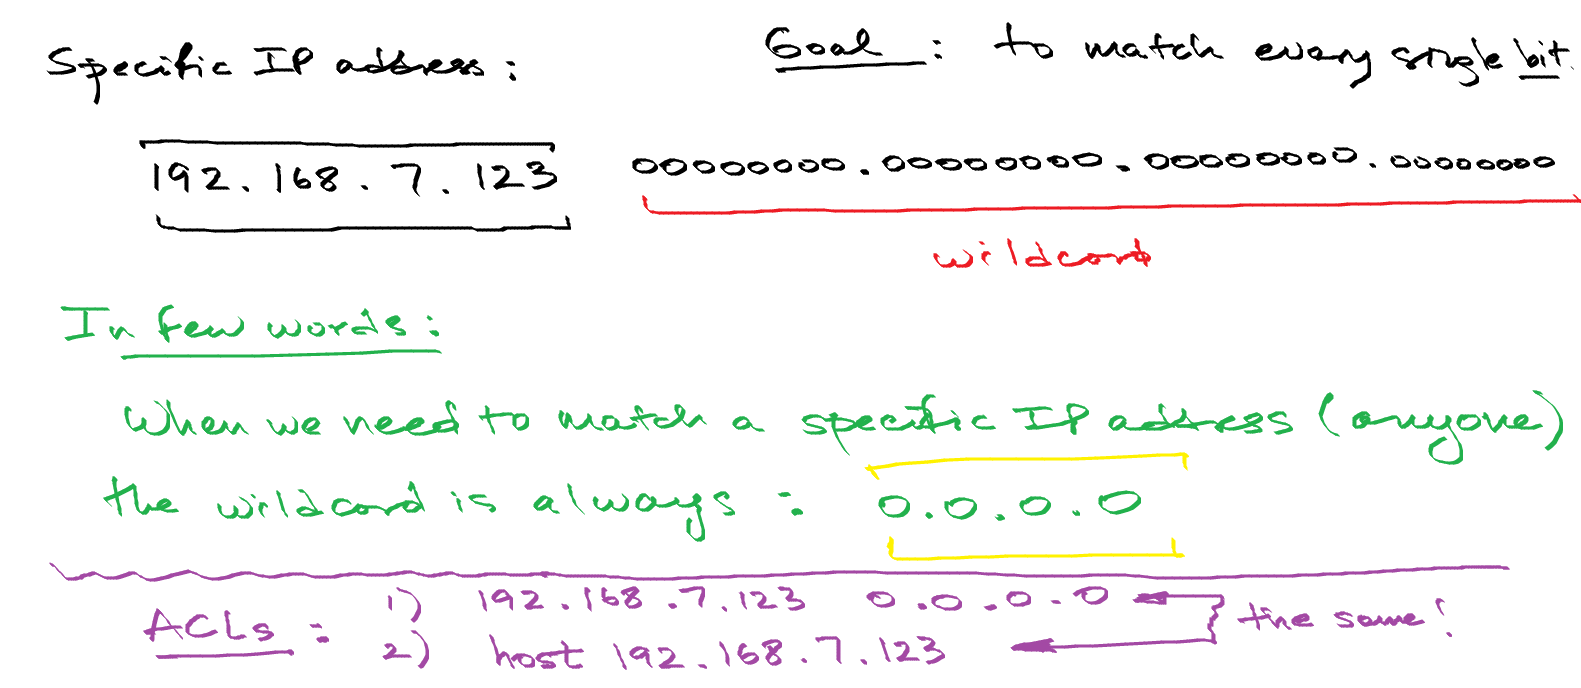 Specific IP address :
Goal : to match every single bit.
192.168.7.123 00000000.00000000.00000000.00000000
wildcard
In few words:
When we need to match a specific IP address (anyone)
the wildcard is always : 0.0.0.0
ACLs : 1) 192.168.7.123 0.0.0.0
2) host 192.168.7.123
the same!